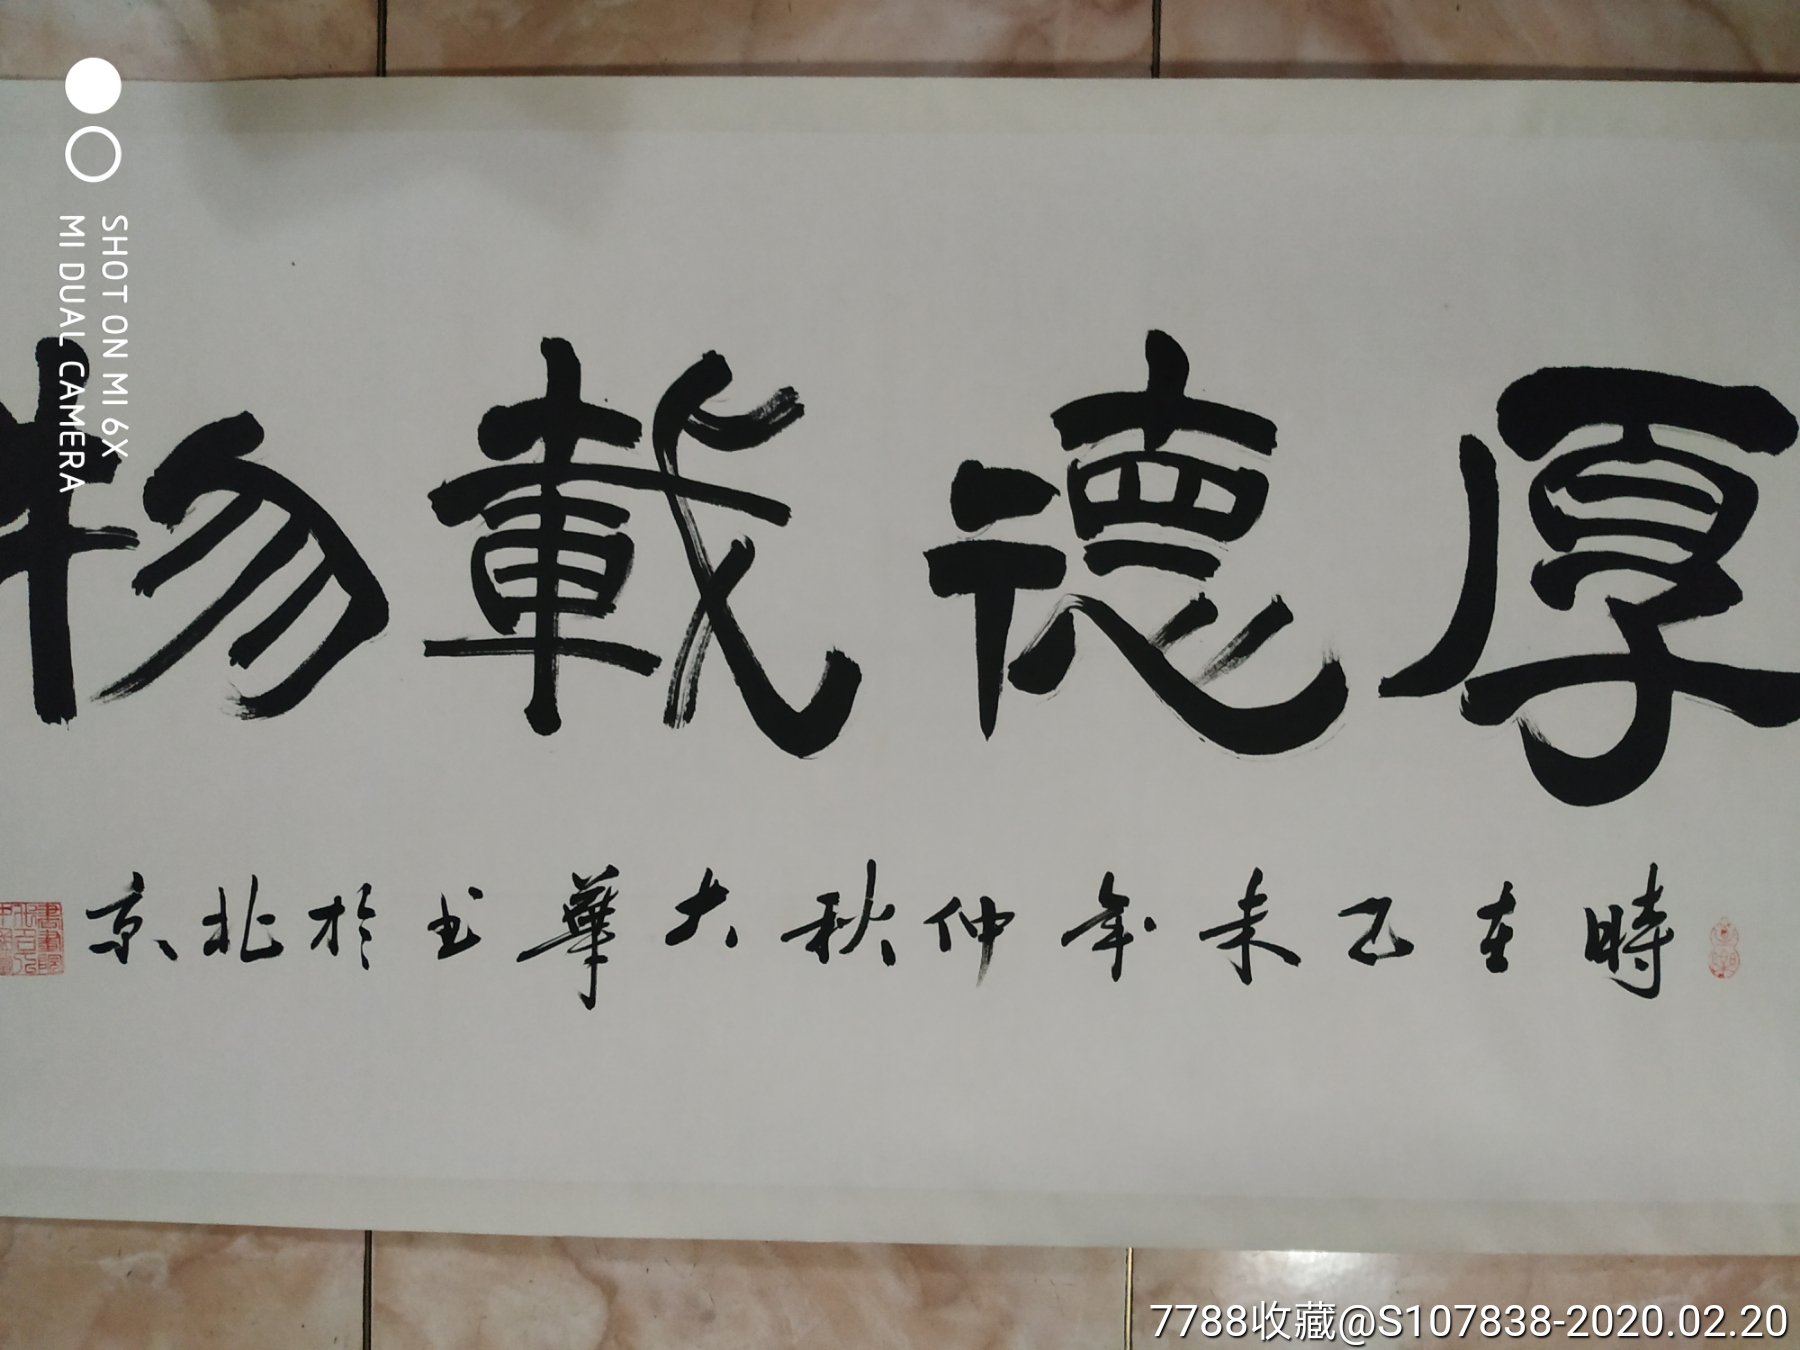 厚德載物
時在乙未年仲秋大華书於北京
SHOT ON MI 6X
MI DUAL CAMERA
7788收藏@S107838-2020.02.20